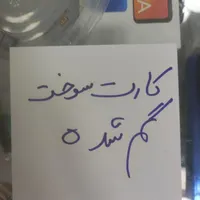 کارت سوخت
گم شده